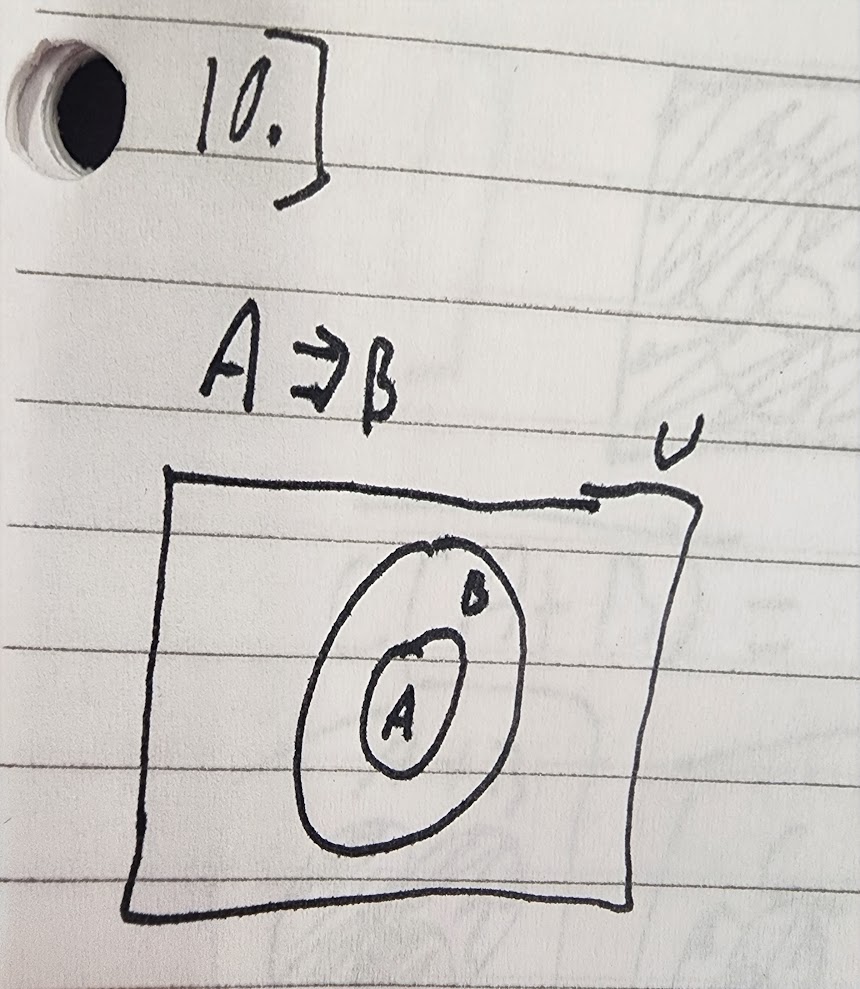 10.]
A ⇒ B
U
B
A